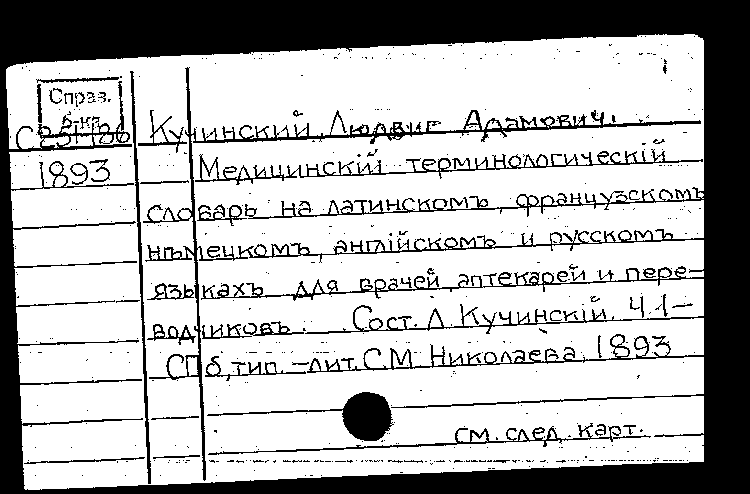 Справ.
б-ка
Кучинский, Людвиг Адамович.
1893 Медицинскiй терминологическiй
словарь на латинскомъ, французскомъ
нѣмецкомъ, англiйскомъ и русскомъ
языкахъ для врачей, аптекарей и пере-
водчиковъ. Сост. Л. Кучинскiй. Ч. 1-
СПб, тип.-лит. С.М. Николаева, 1893
см. след. карт.